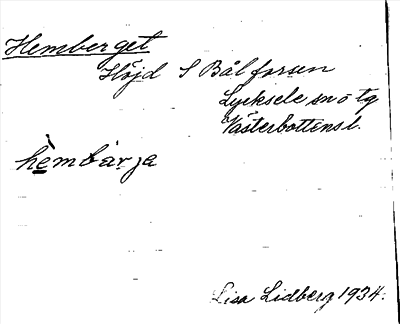 Hemberget
Höjd S Bålforsen
Lycksele sn o tg
Västerbottens l.
hèmbärja
Lisa Lidberg 1934.